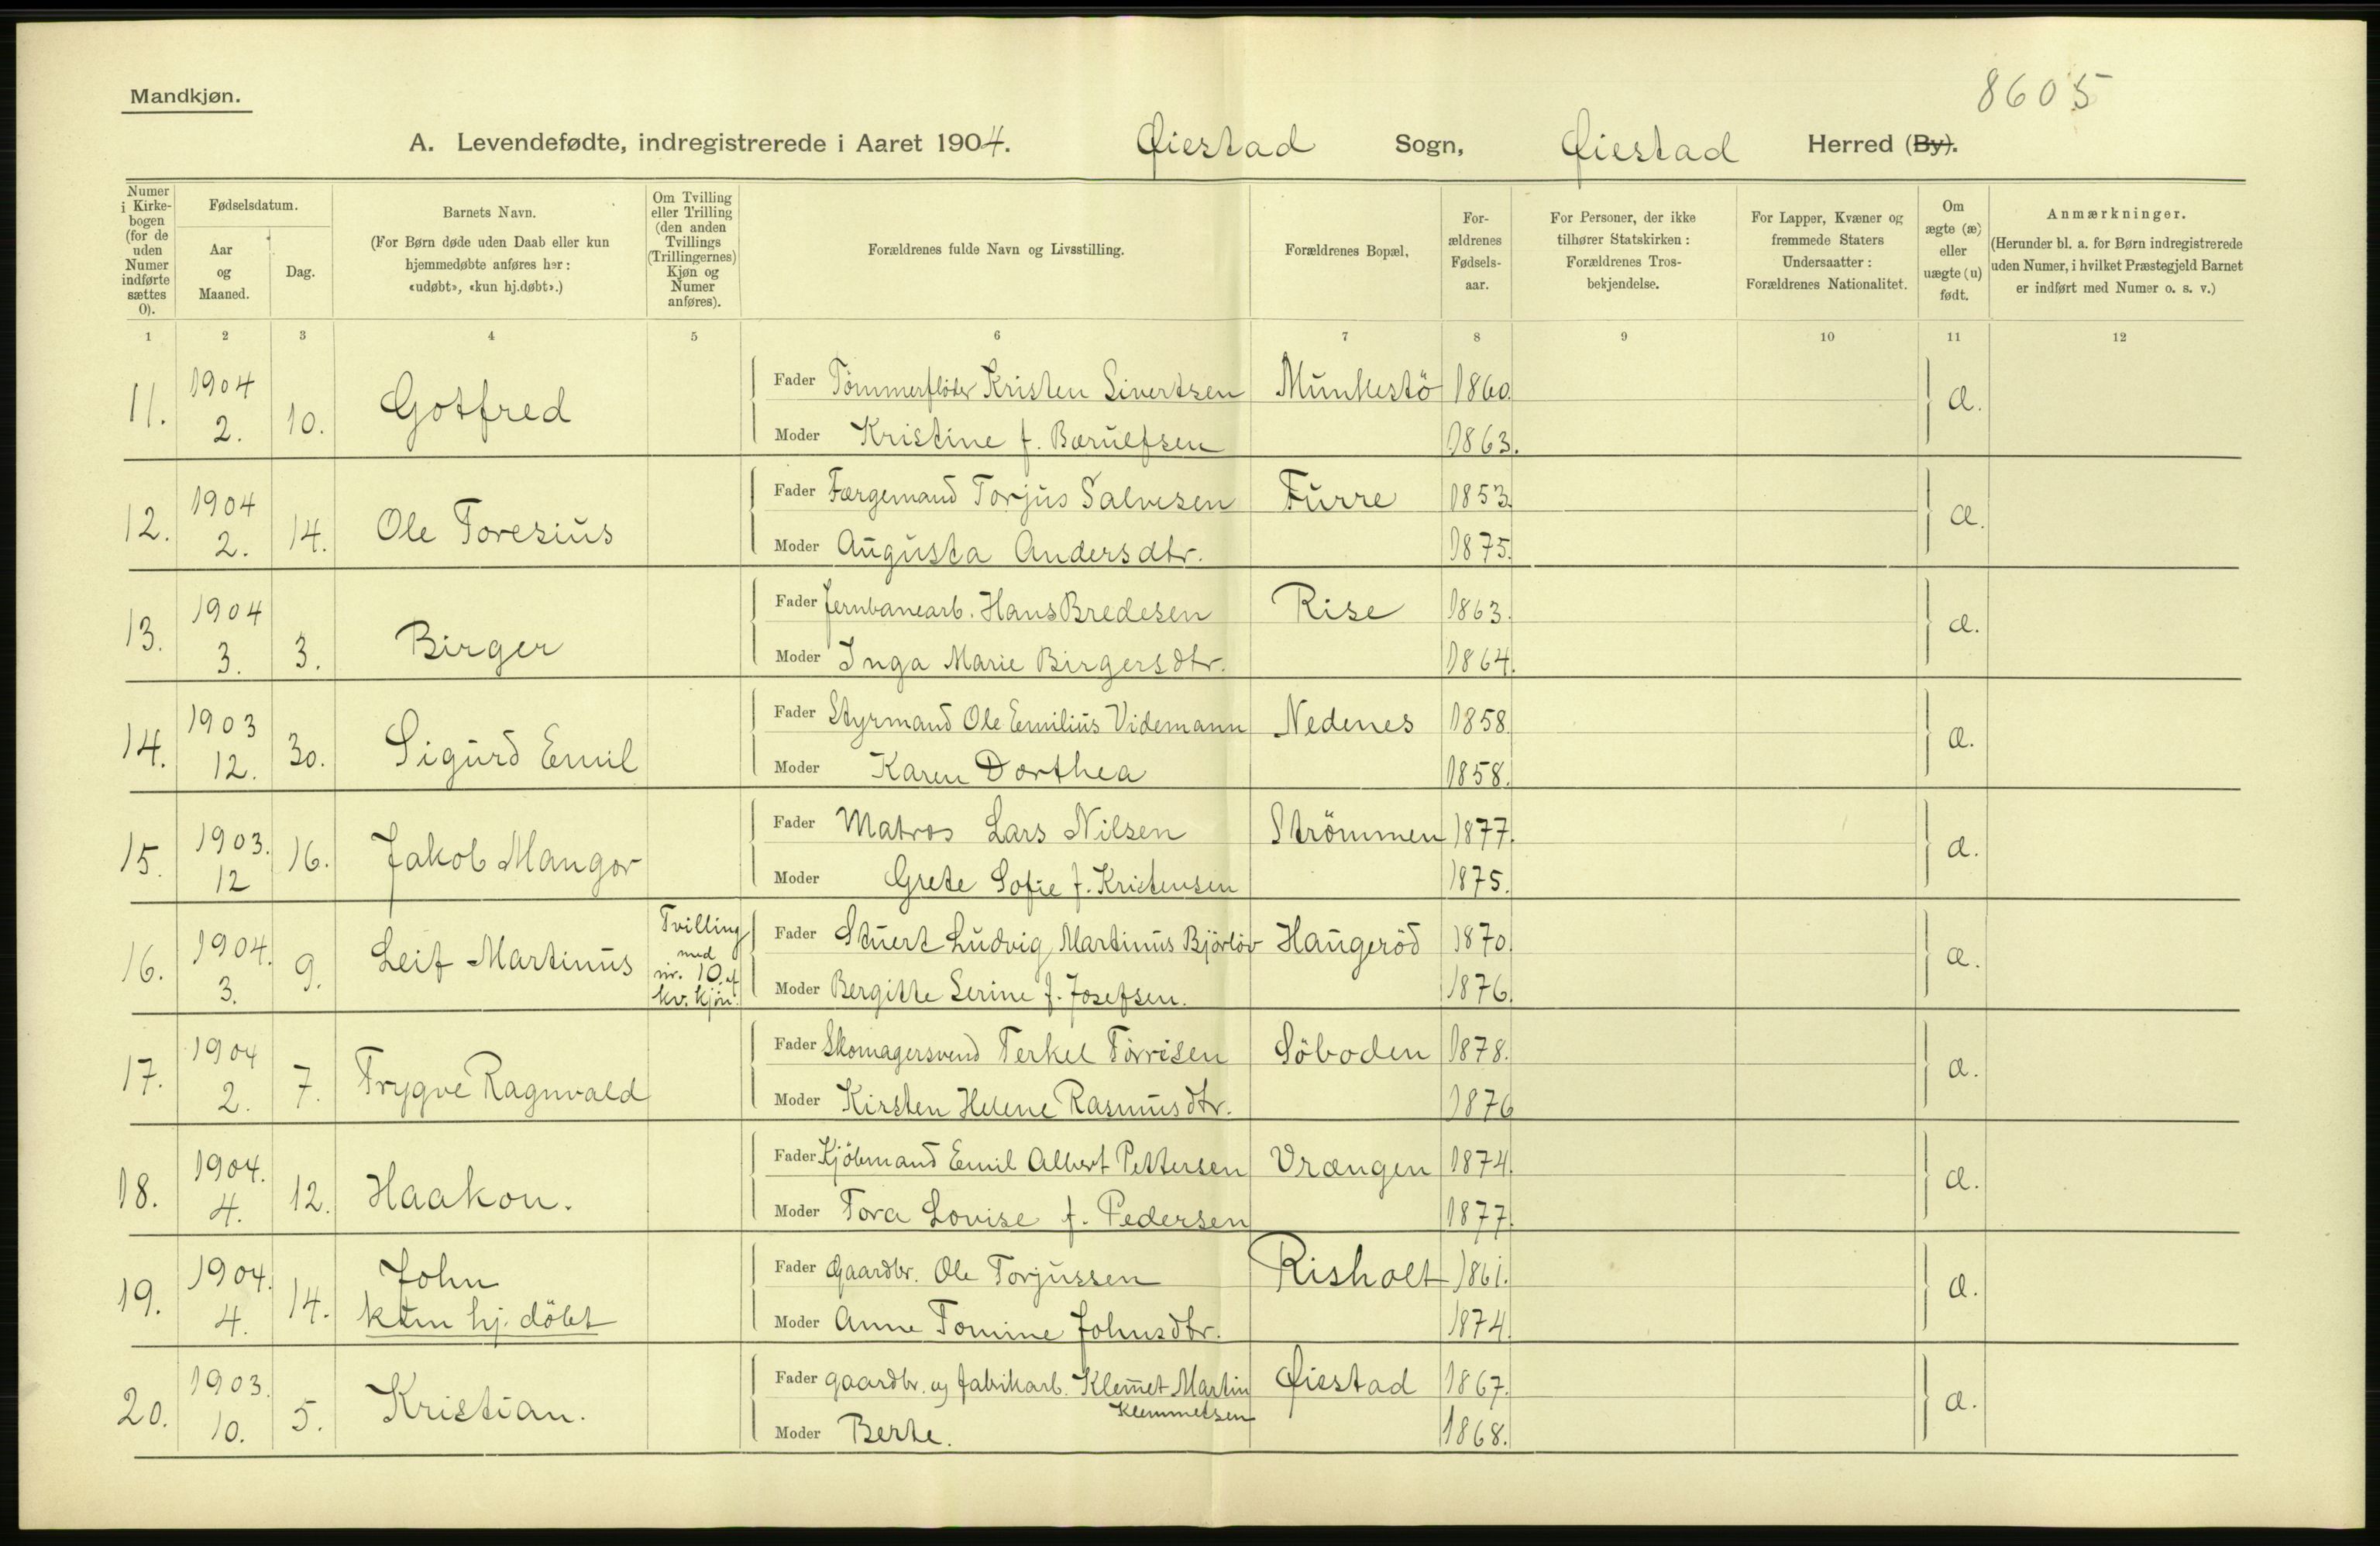 8605
Mandkjøn.
A. Levendefødte, indregistrerede i Aaret 1904. Øiestad Sogn, Øiestad Herred (By).
Numer i Kirkebogen (for de uden Numer indførte sættes 0).
Fødselsdatum.
Aar og Maaned.
Dag.
Barnets Navn.
(For Børn døde uden Daab eller kun hjemmedøbte anføres her: «udøbt», «kun hj.døbt».)
Om Tvilling eller Trilling (den anden Tvillings (Trillingernes) Kjøn og Numer anføres).
Forældrenes fulde Navn og Livsstilling.
Forældrenes Bopæl.
Forældrenes Fødselsaar.
For Personer, der ikke tilhører Statskirken: Forældrenes Trosbekjendelse.
For Lapper, Kvæner og fremmede Staters Undersaatter: Forældrenes Nationalitet.
Om ægte (æ) eller uægte (u) født.
Anmærkninger.
(Herunder bl. a. for Børn indregistrerede uden Numer, i hvilket Præstegjeld Barnet er indført med Numer o. s. v.)
1 2 3 4 5 6 7 8 9 10 11 12
11. 1904 2. 10. Gotfred Fader Tömmerflöder Kristen Sivertsen 1860. æ.
Moder Kristine f. Bærulfsen 1863.
12. 1904 2. 14. Ole Toresius Fader Færgemand Torjus Salvesen Furre 1853. æ.
Moder Augusta Andersdtr. 1875.
13. 1904 3. 3. Birger Fader Jernbanearb. Hans Bredesen Rise 1863. æ.
Moder Inga Marie Birgersdtr. 1864.
14. 1903 12. 30. Sigurd Emil Fader Styrmand Ole Emilius Videmann Nedenes 1858. æ.
Moder Karen Dorthea 1858.
15. 1903. 12 16. Jakob Mangor Fader Matros Lars Nilsen Strömmen 1877. æ.
Moder Grete Sofie f. Kristensen 1875.
16. 1904. 3. 9. Leif Martinus Tvilling med nr. 10 af kv. kjön. Fader Stuert Ludvig Martinus Björlöv Haugeröd 1870. æ.
Moder Bergitte Serine f. Josefsen. 1876.
17. 1904 2. 7. Trygve Ragnvald Fader Skomagersvend Terkel Törrisen Söboden 1878. æ.
Moder Kirsten Helene Rasmusdtr. 1876
18. 1904. 4. 12. Haakon. Fader Kjöbmand Emil Albert Pettersen Vrængen 1874. æ.
Moder Tora Lovise f. Pedersen 1877.
19. 1904. 4. 14. John kun hj. döbt Fader Gaardbr. Ole Torjussen Risholt 1861. æ.
Moder Anne Tomine Johnsdtr. 1874.
20. 1903. 10. 5. Kristian. Fader gaardbr. og fabrikarb. Klemet Martin Klemmetsen Øiestad 1867. æ.
Moder Berte. 1868.